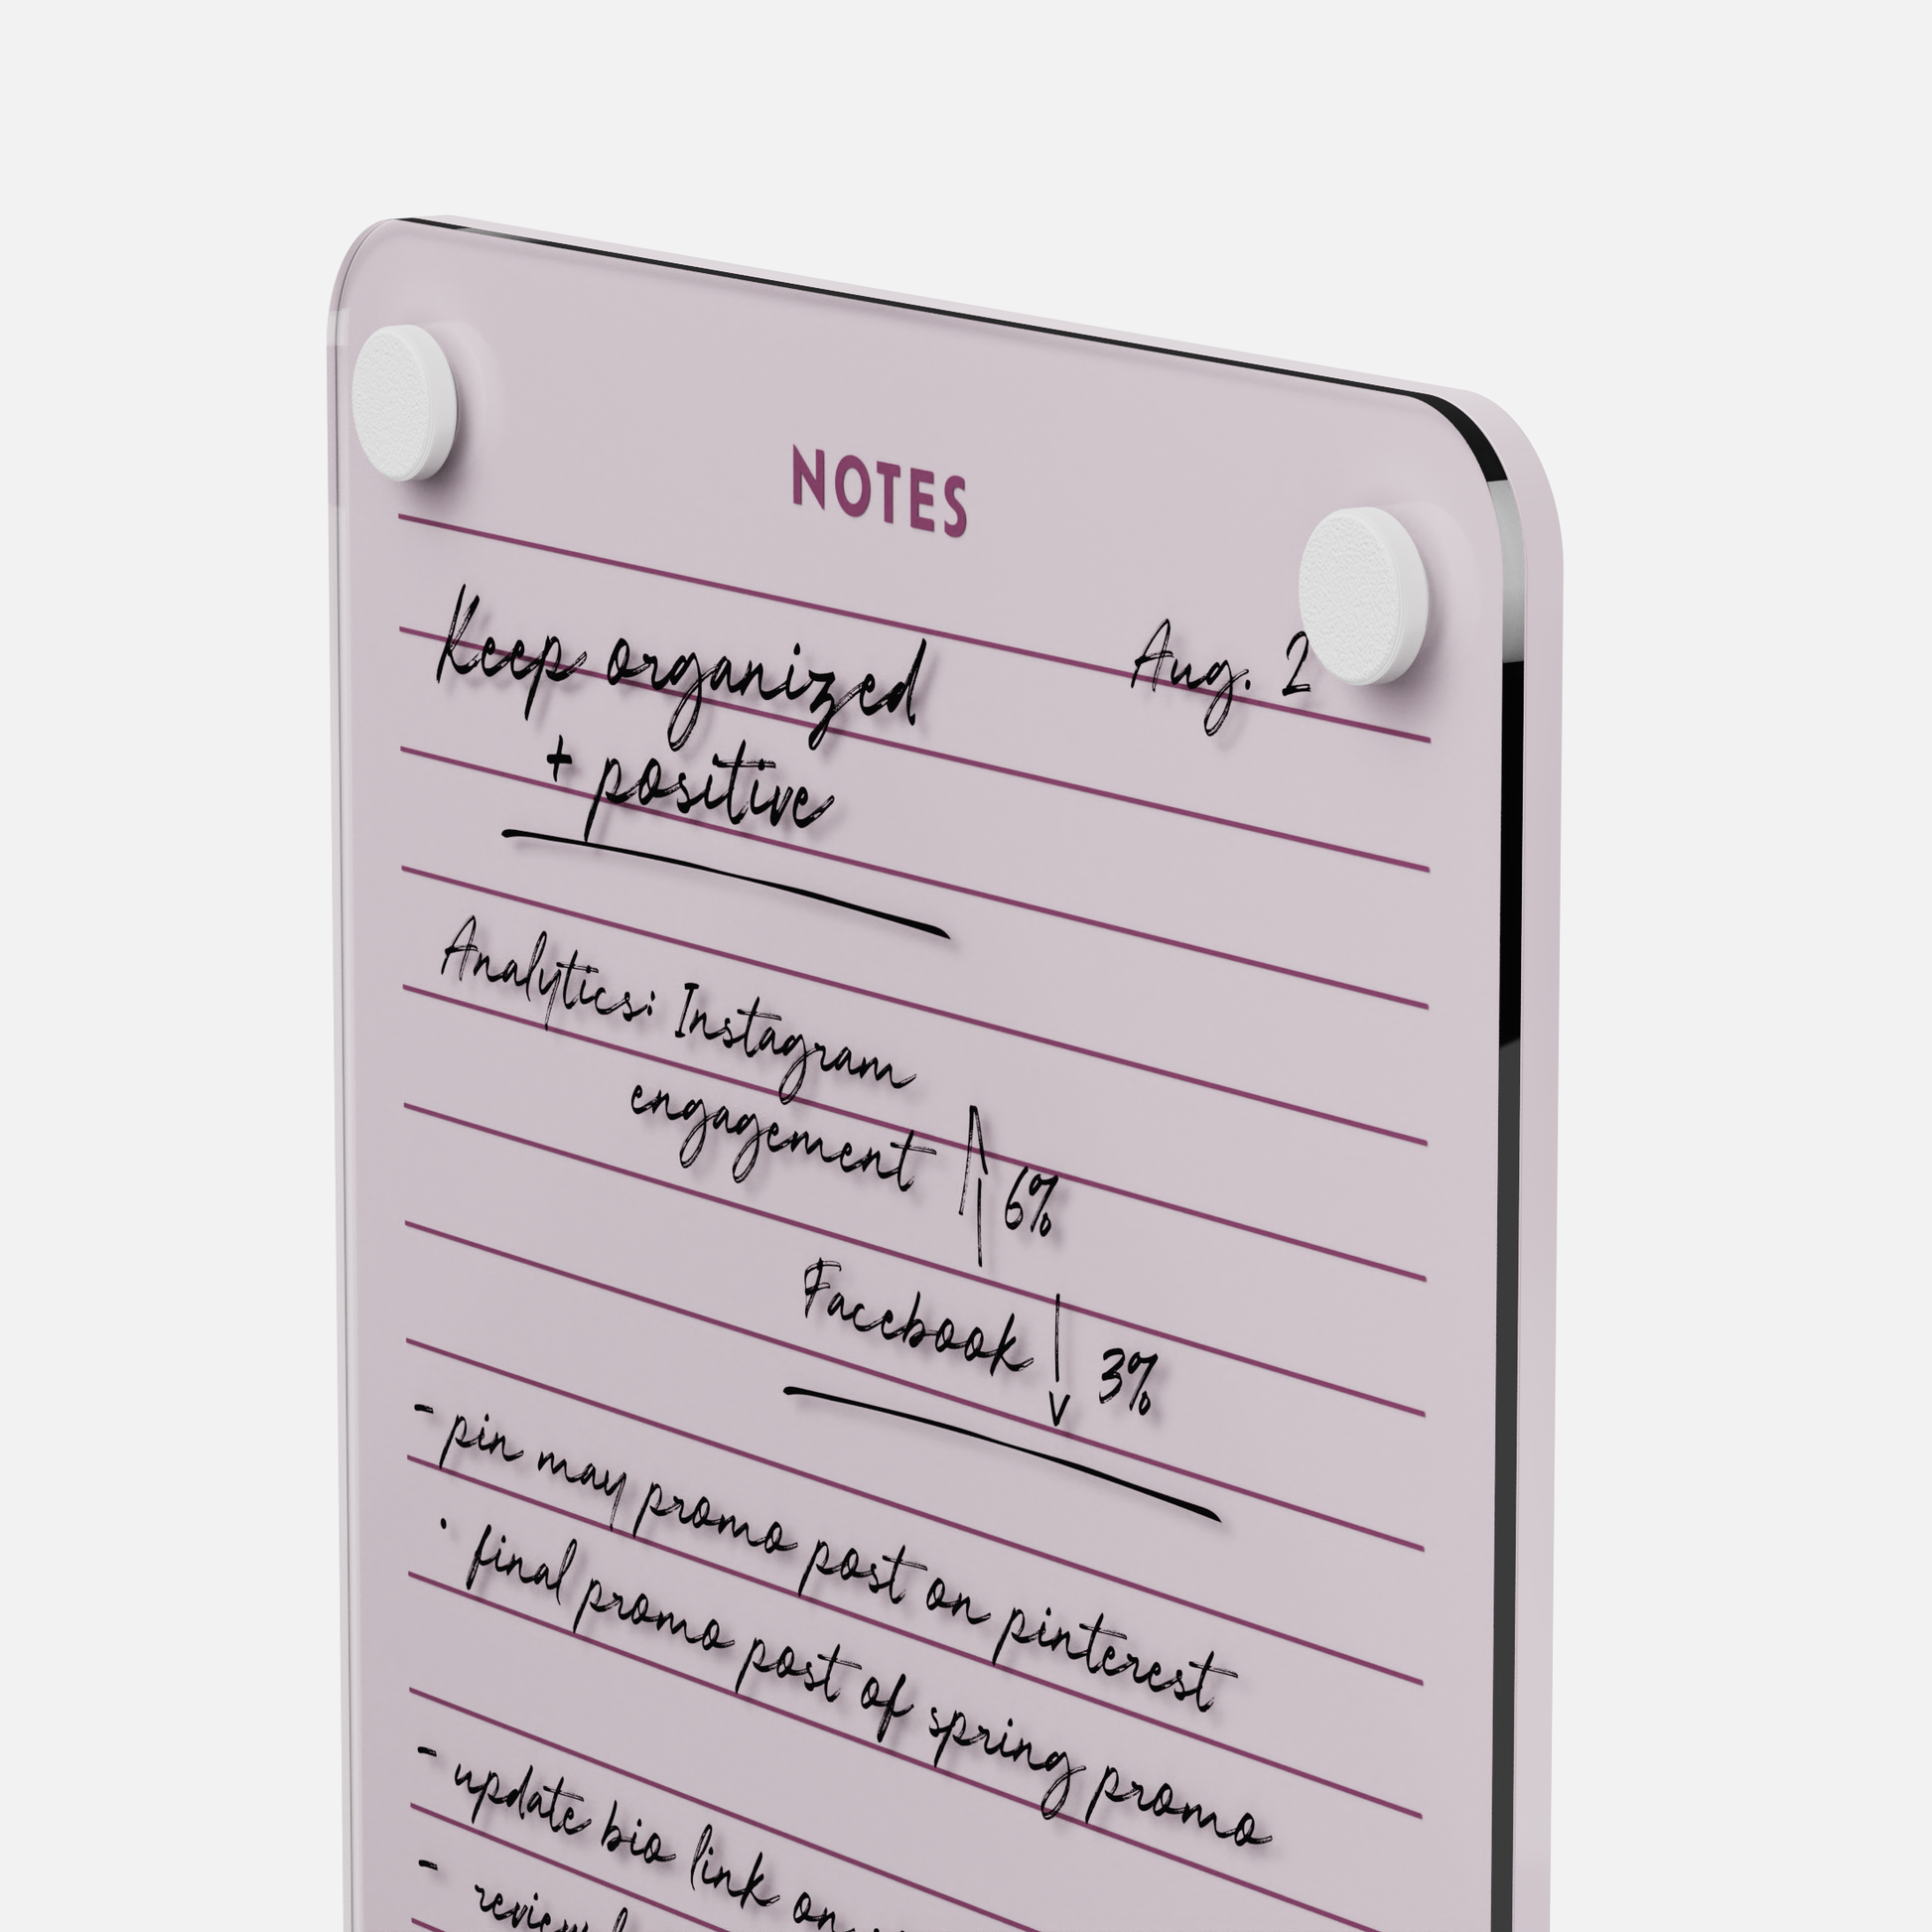 NOTES
Keep organized
Aug. 2
+ positive
Analytics: Instagram
engagement ↑ 6%
Facebook ↓ 3%
- pin may promo post on pinterest
· final promo post of spring promo
- update bio link on
- review